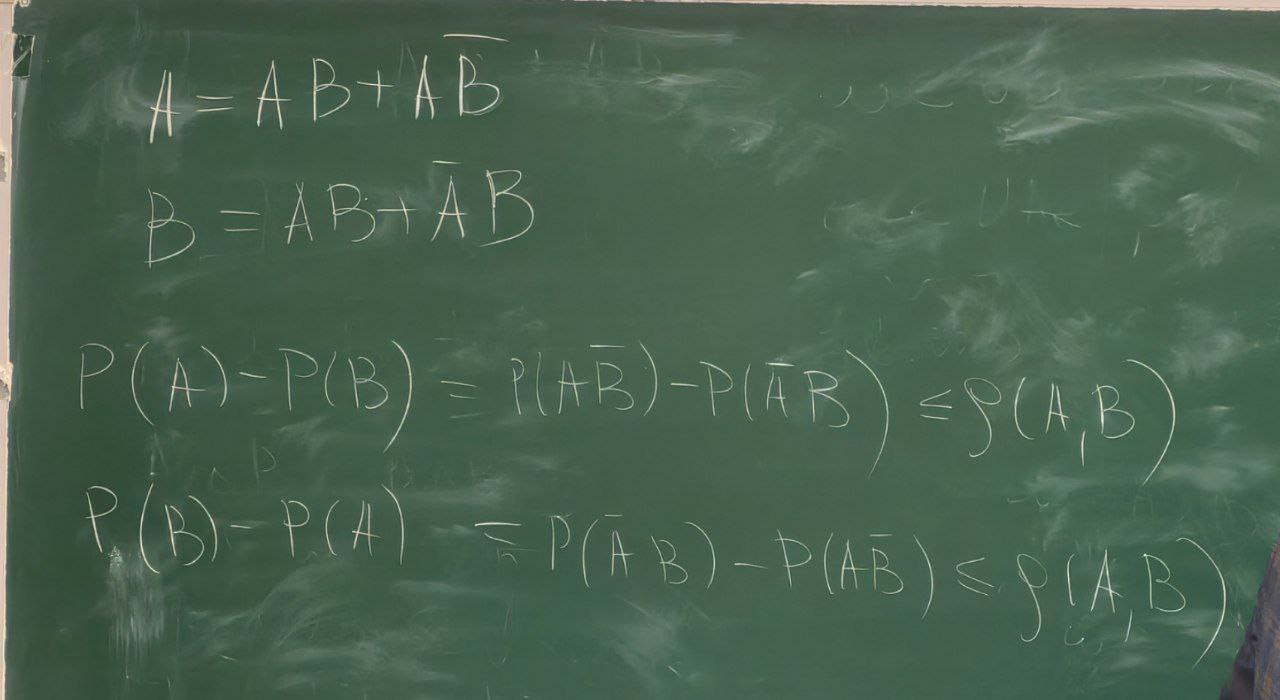 A = A B + A B̅
B = A B + A̅ B
P(A) - P(B) = P(A B̅) - P(A̅ B) ≤ ρ(A, B)
P(B) - P(A) = P(A̅ B) - P(A B̅) ≤ ρ(A, B)